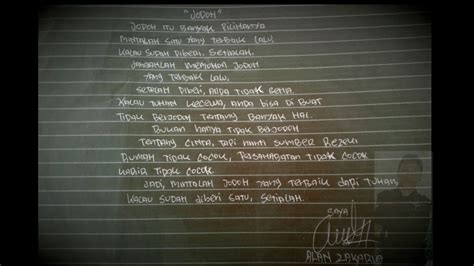 "JODOH"
JODOH ITU BANYAK PILIHANYA
MINTALAH SATU YANG TERBAIK LALU,
KALAU SUDAH DIBERI, SETIALAH.
JANGANLAH MEMOHON JODOH
YANG TERBAIK LALU,
SETELAH DIBERI, ANDA TIDAK SETIA.
KALAU TUHAN KECEWA, ANDA BISA DI BUAT
TIDAK BERJODOH TENTANG BANYAK HAL.
BUKAN HANYA TIDAK BERJODOH
TENTANG CINTA, TAPI NANTI SUMBER REZEKI
RUMAH TIDAK COCOK, PERSAHABATAN TIDAK COCOK
KARIR TIDAK COCOK
JADI, MINTALAH JODOH YANG TERBAIK DARI TUHAN,
KALAU SUDAH DIBERI SATU, SETIALAH.
SAYA
ALAN ZAKARIA